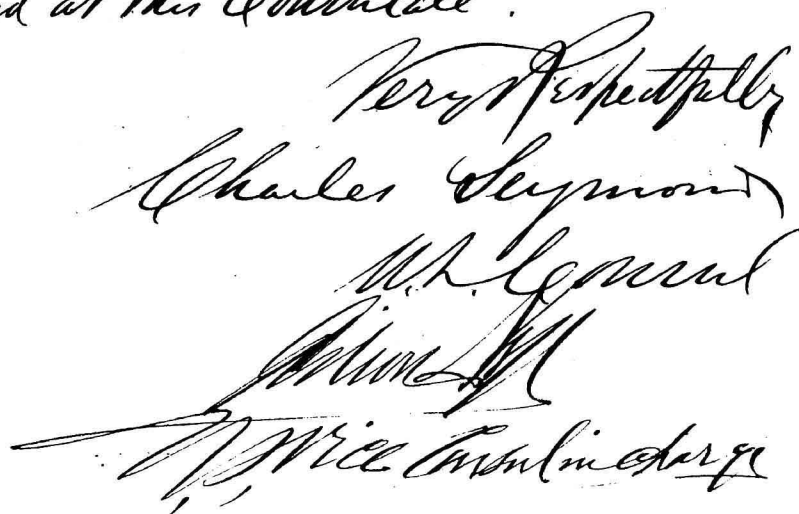 at this Consulate.
Very Respectfully
Charles Seymour
U.S. Consul
U.S. Vice Consul in charge